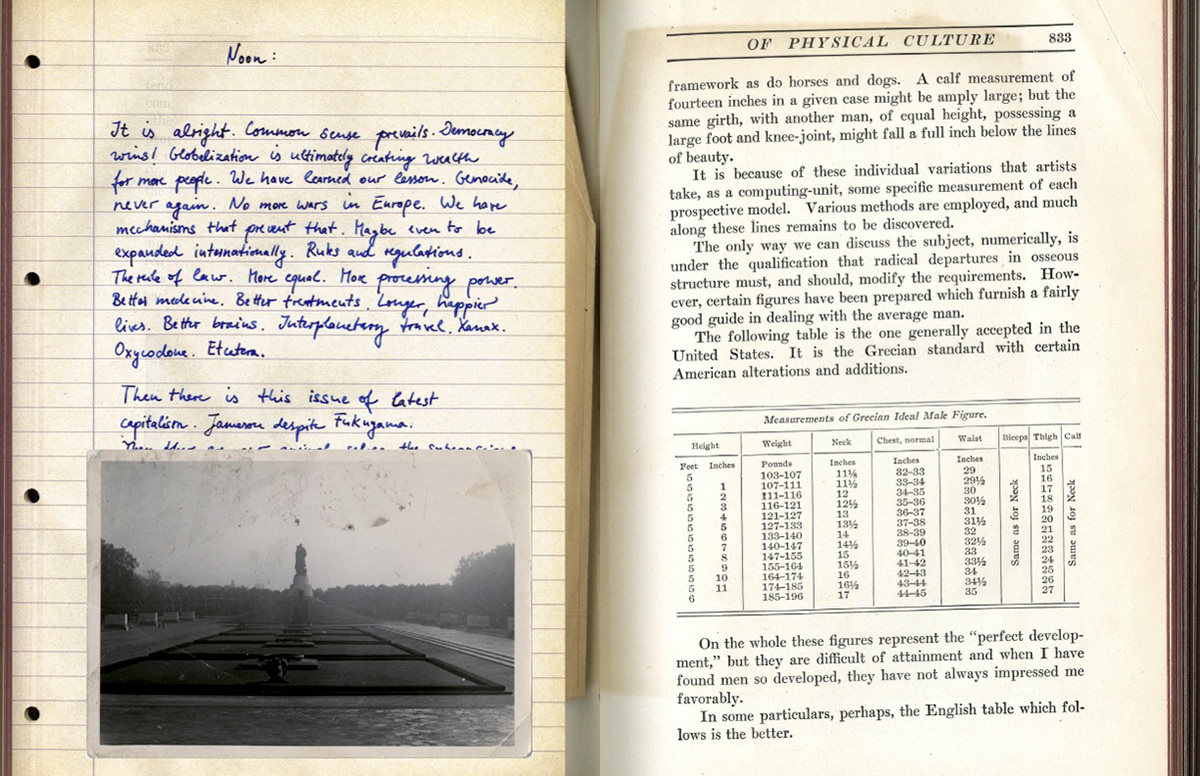 Noon:
It is alright. Common sense prevails. Democracy
wins! Globalization is ultimately creating wealth
for more people. We have learned our lesson. Genocide,
never again. No more wars in Europe. We have
mechanisms that prevent that. Maybe even to be
expanded internationally. Rules and regulations.
The rule of law. More equal. More processing power.
Better medecine. Better treatments. Longer, happier
lives. Better brains. Interplanetary travel. Xanax.
Oxycodone. Etcetera.
Then there is this issue of latest
capitalism. Jameson despite Fukuyama.
OF PHYSICAL CULTURE 833
framework as do horses and dogs. A calf measurement of
fourteen inches in a given case might be amply large; but the
same girth, with another man, of equal height, possessing a
large foot and knee-joint, might fall a full inch below the lines
of beauty.
It is because of these individual variations that artists
take, as a computing-unit, some specific measurement of each
prospective model. Various methods are employed, and much
along these lines remains to be discovered.
The only way we can discuss the subject, numerically, is
under the qualification that radical departures in osseous
structure must, and should, modify the requirements. How-
ever, certain figures have been prepared which furnish a fairly
good guide in dealing with the average man.
The following table is the one generally accepted in the
United States. It is the Grecian standard with certain
American alterations and additions.
Measurements of Grecian Ideal Male Figure.
Height Weight Neck Chest, normal Waist Biceps Thigh Calf
Feet Inches Pounds Inches Inches Inches Inches
5 103-107 32-33 29 15
5 1 107-111 11½ 33-34 29½ 16
5 2 111-116 12 34-35 30 17
5 3 116-121 12½ 35-36 30½ 18
5 4 121-127 13 36-37 31 19
5 5 127-133 13½ 37-38 31½ 20
5 6 133-140 14 38-39 32 21
5 7 140-147 14½ 39-40 32½ 22
5 8 147-155 15 40-41 33 23
5 9 155-164 15½ 41-42 33½ 24
5 10 164-174 16 42-43 34 25
5 11 174-185 16½ 43-44 34½ 26
6 185-196 17 44-45 35 27
Same as for Neck
Same as for Neck
On the whole these figures represent the "perfect develop-
ment," but they are difficult of attainment and when I have
found men so developed, they have not always impressed me
favorably.
In some particulars, perhaps, the English table which fol-
lows is the better.